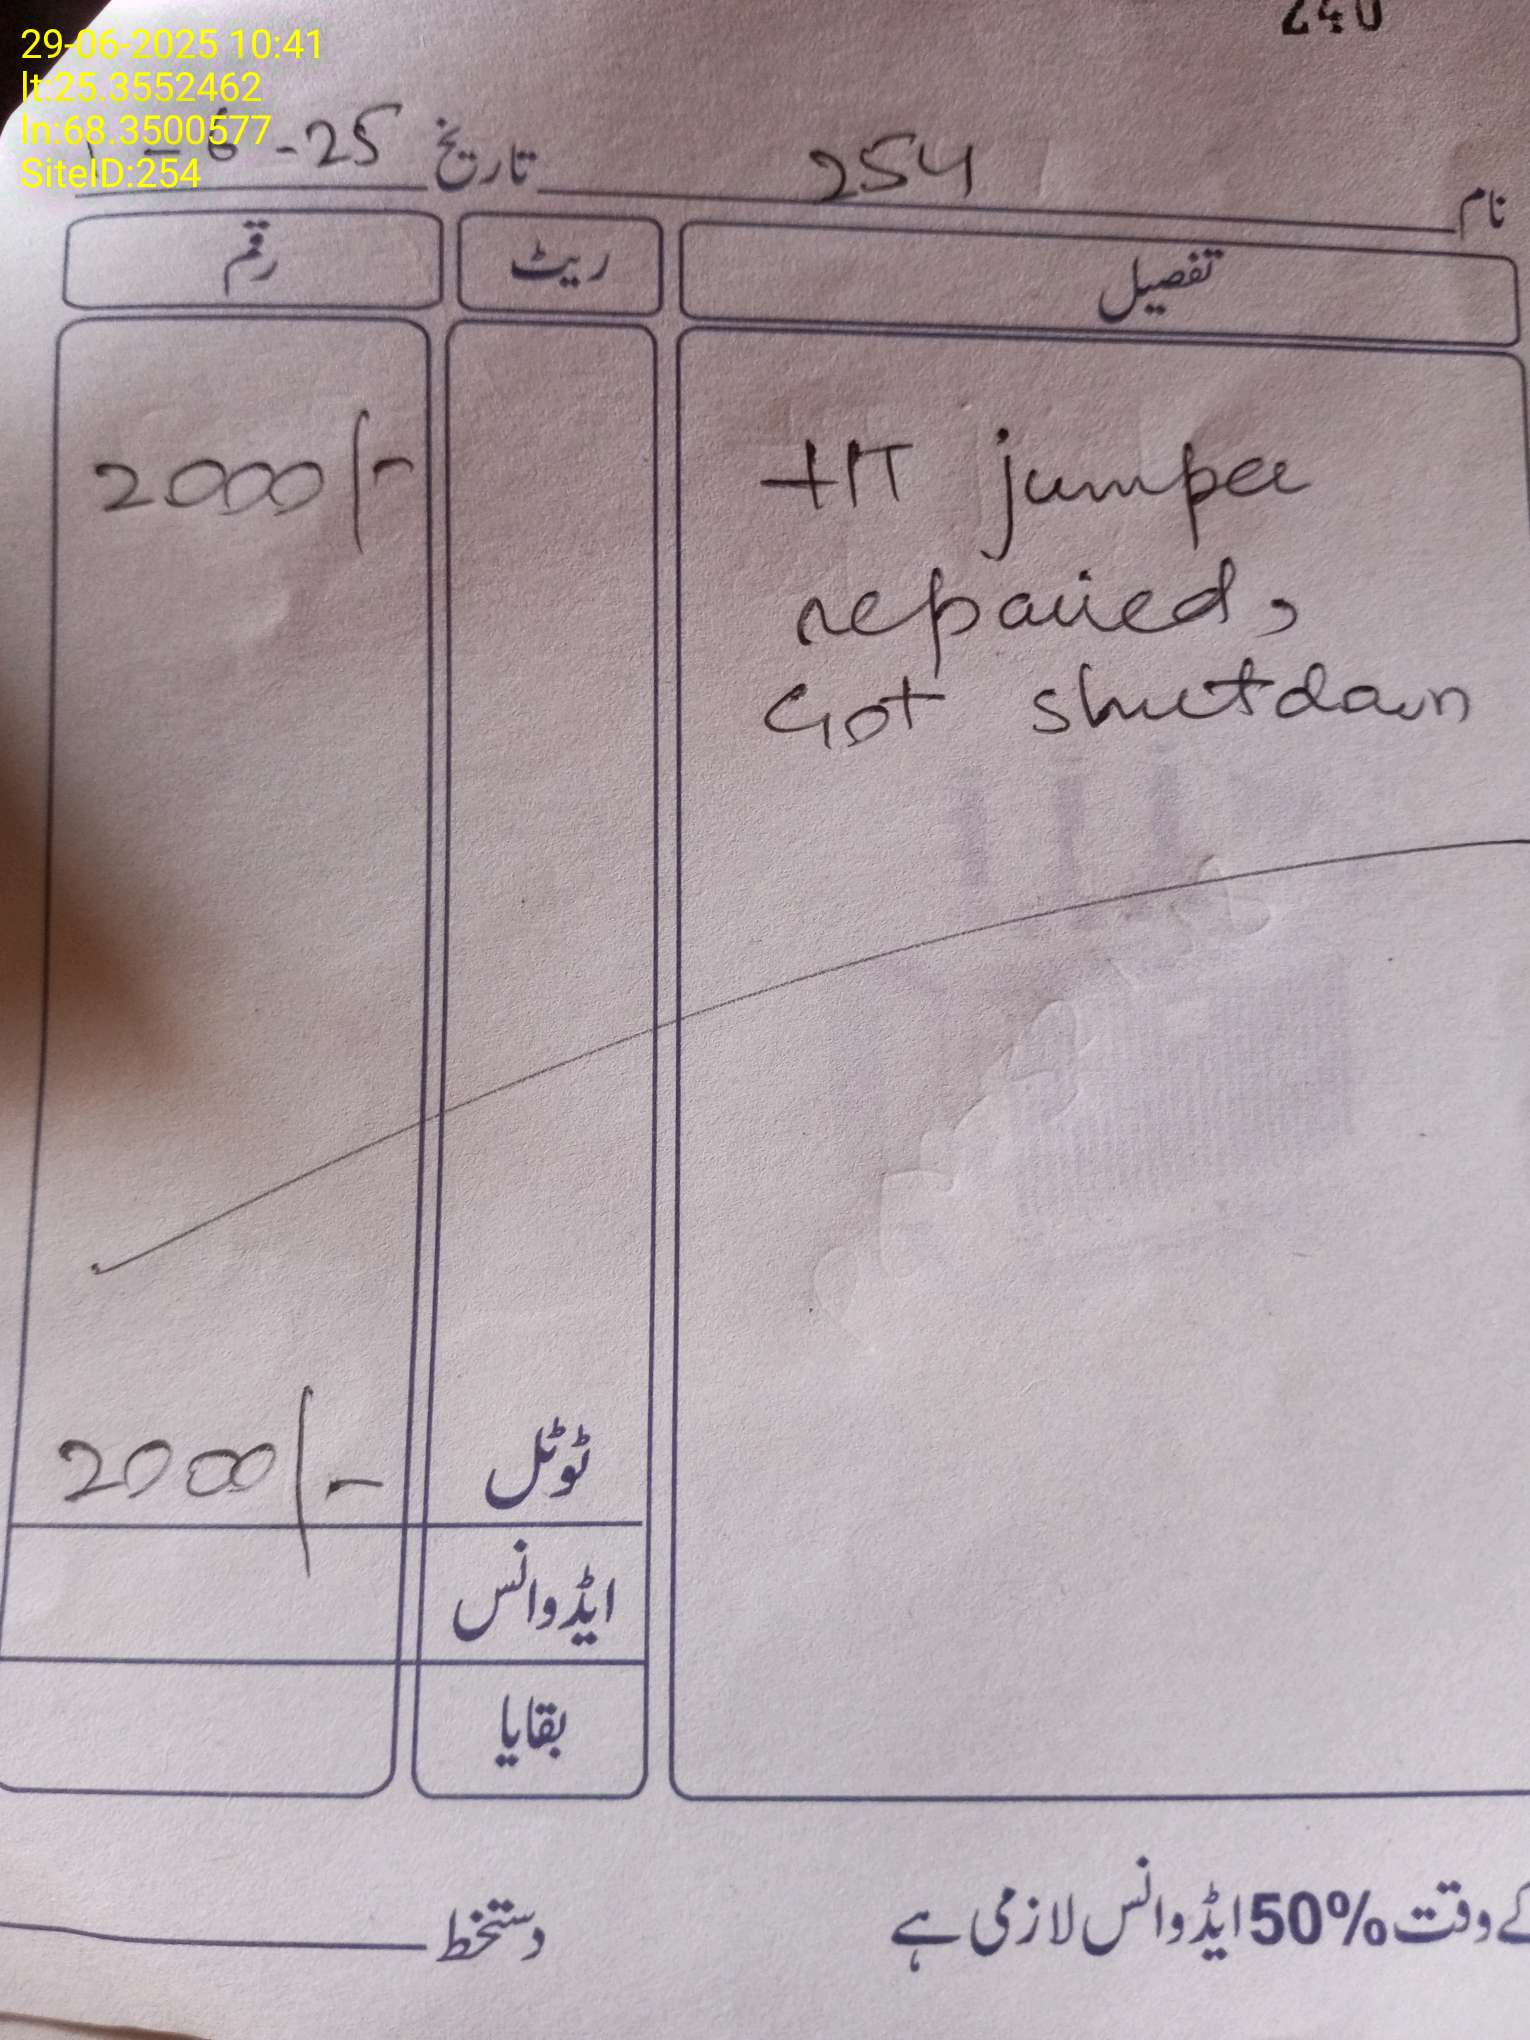 29-06-2025 10:41
lt:25.3552462
ln:68.3500577
SiteID:254
240
نام 254 تاریخ 1-6-25
تفصیل ریٹ رقم
HT jumper 2000/-
repaired,
Got shutdown
ٹوٹل 2000/-
ایڈوانس
بقایا
کے وقت %50 ایڈوانس لازمی ہے
دستخط